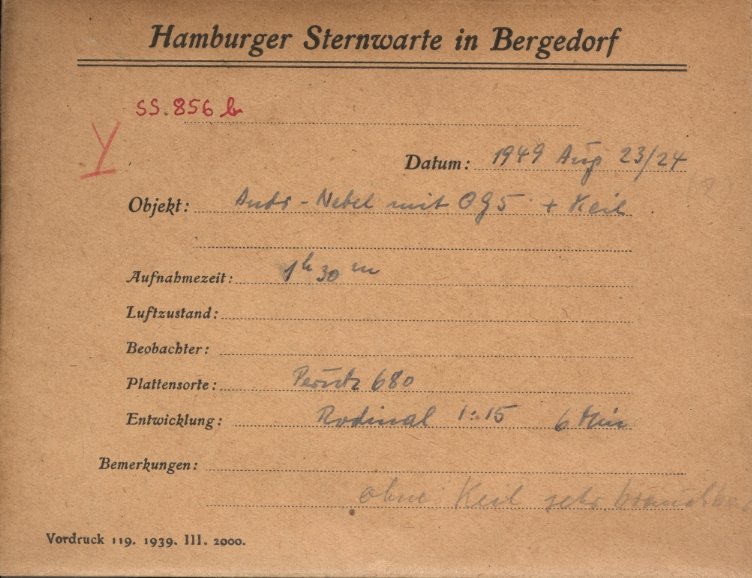 Hamburger Sternwarte in Bergedorf
SS. 856 b
Y
Datum: 1949 Aug 23/24
Objekt: Andr-Nebel mit OG5 + Keil
Aufnahmezeit: 1h 30m
Luftzustand:
Beobachter:
Plattensorte: Perutz 680
Entwicklung: Rodinal 1:15 6 Min
Bemerkungen:
ohne Keil sehr brauchbar
Vordruck 119. 1939. III. 2000.